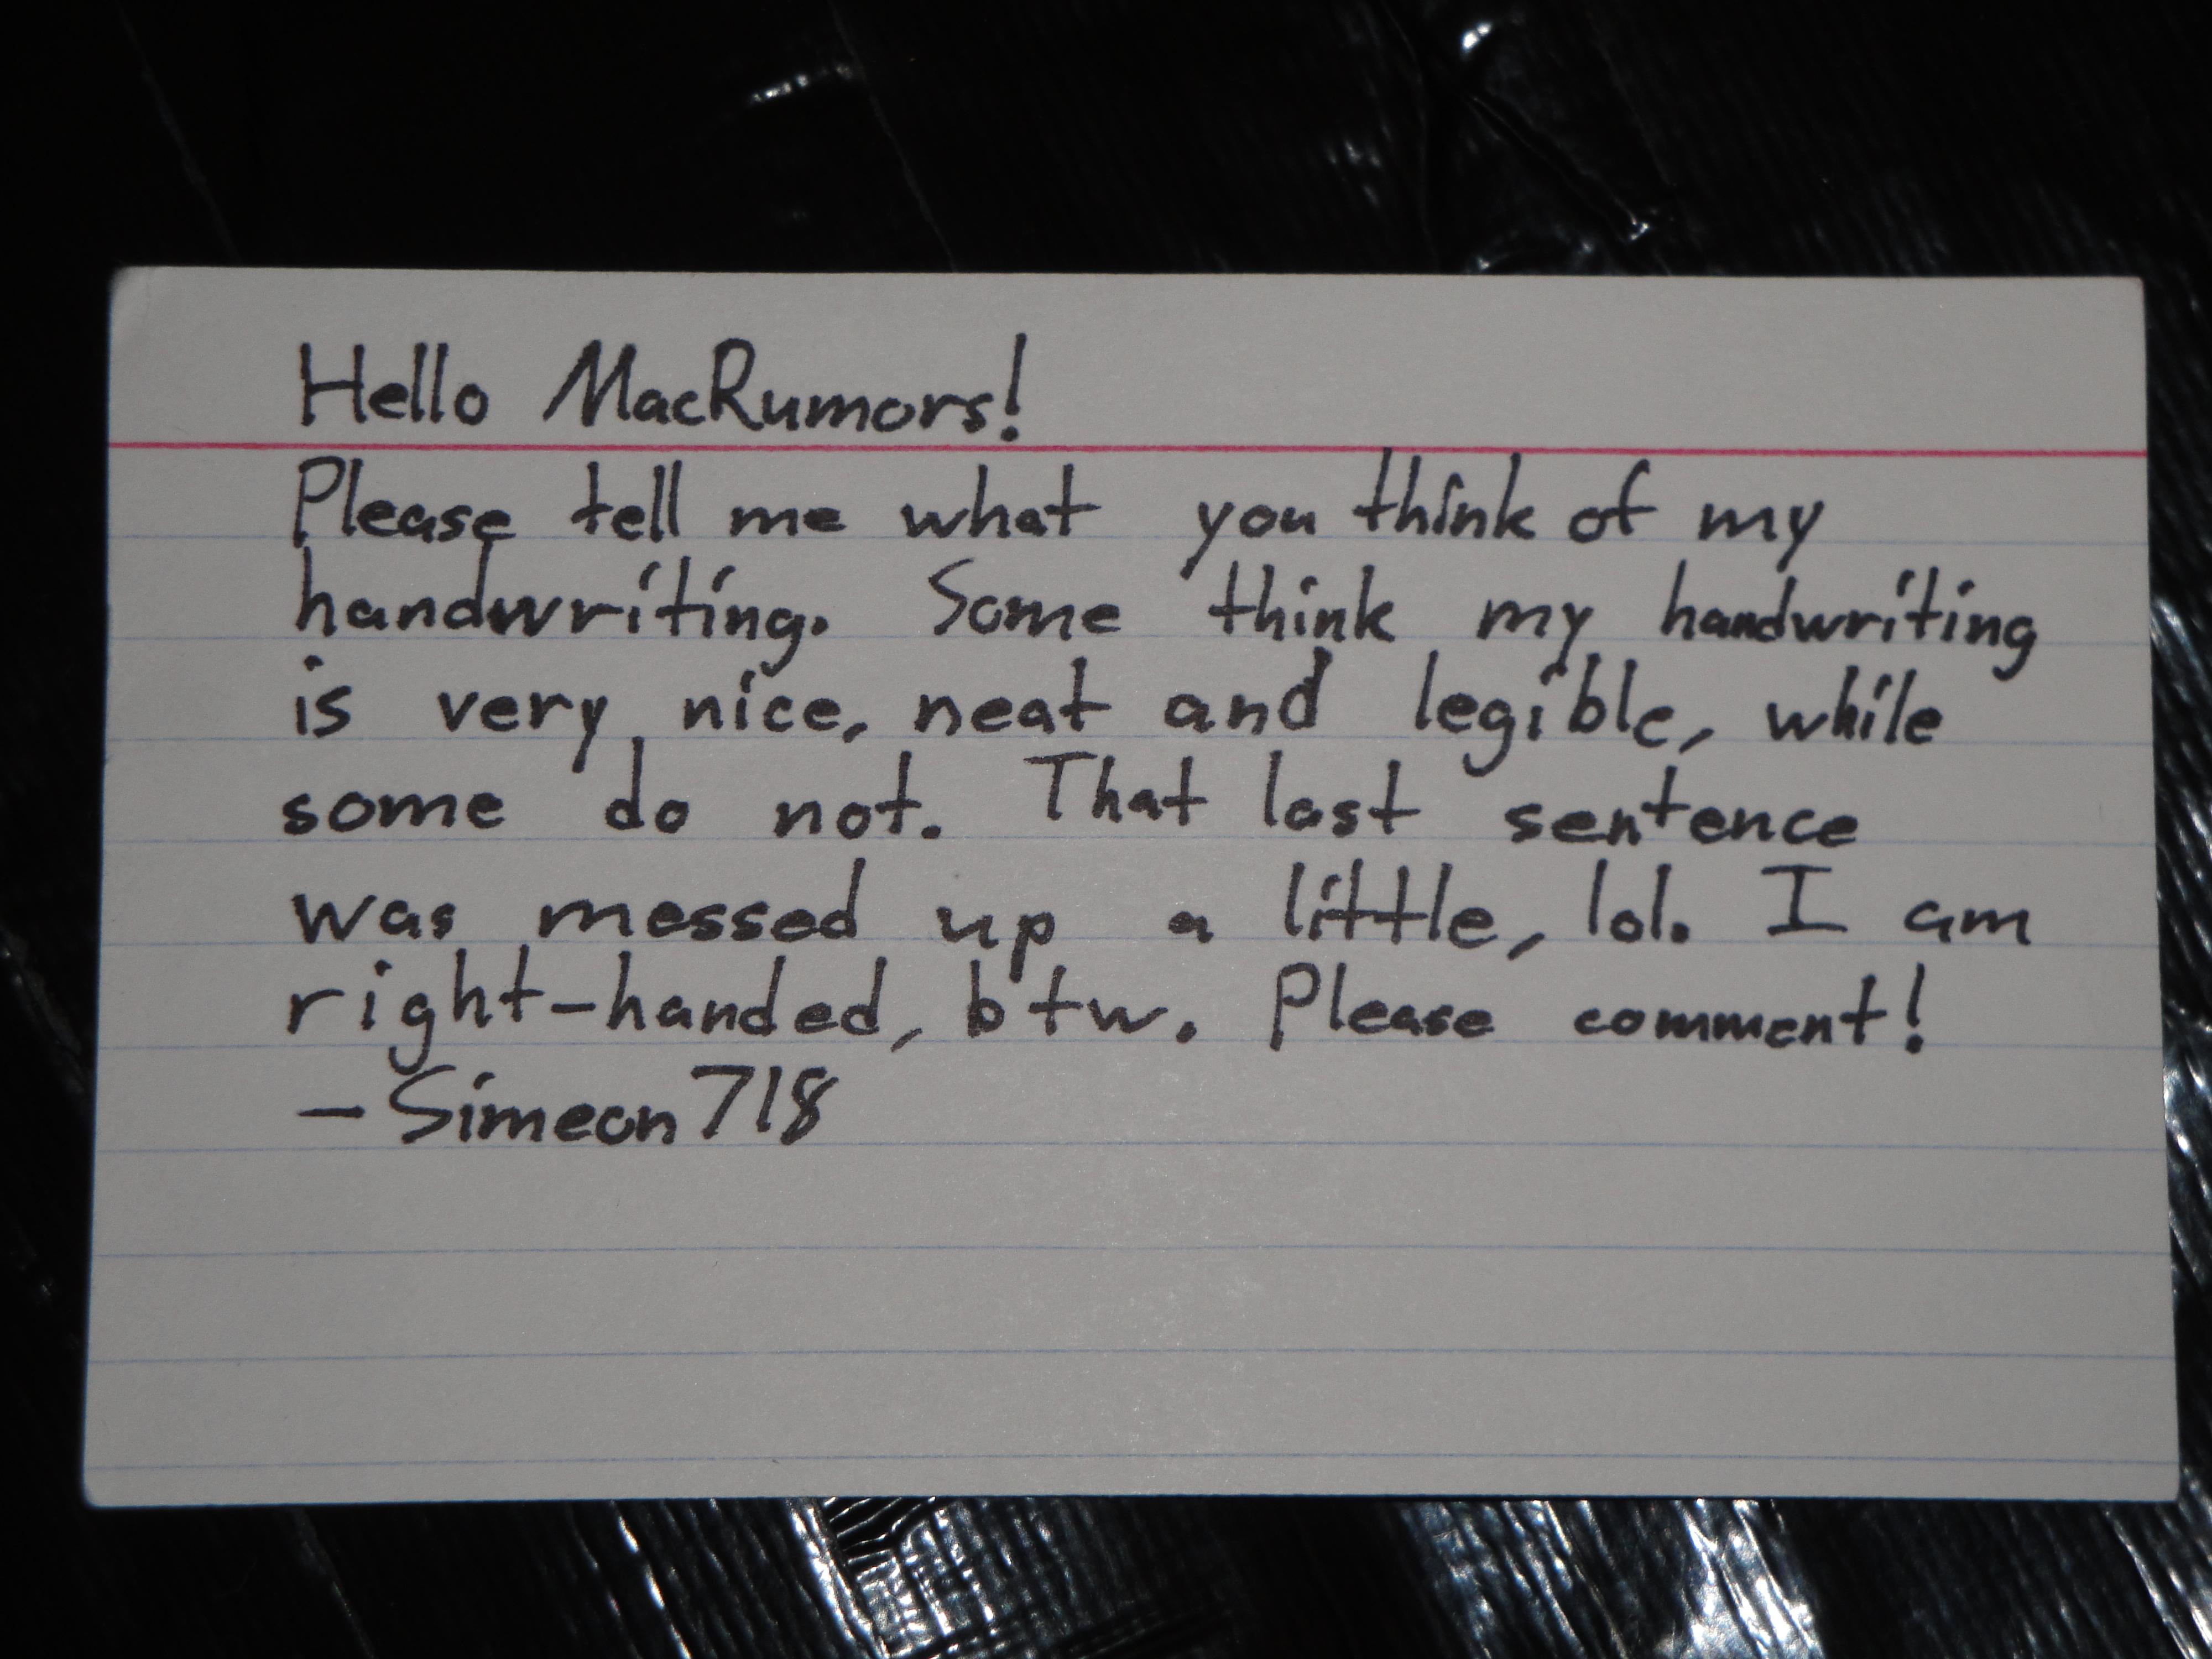 Hello MacRumors!
Please tell me what you think of my
handwriting. Some think my handwriting
is very nice, neat and legible, while
some do not. That last sentence
was messed up a little, lol. I am
right-handed, btw. Please comment!
- Simeon718